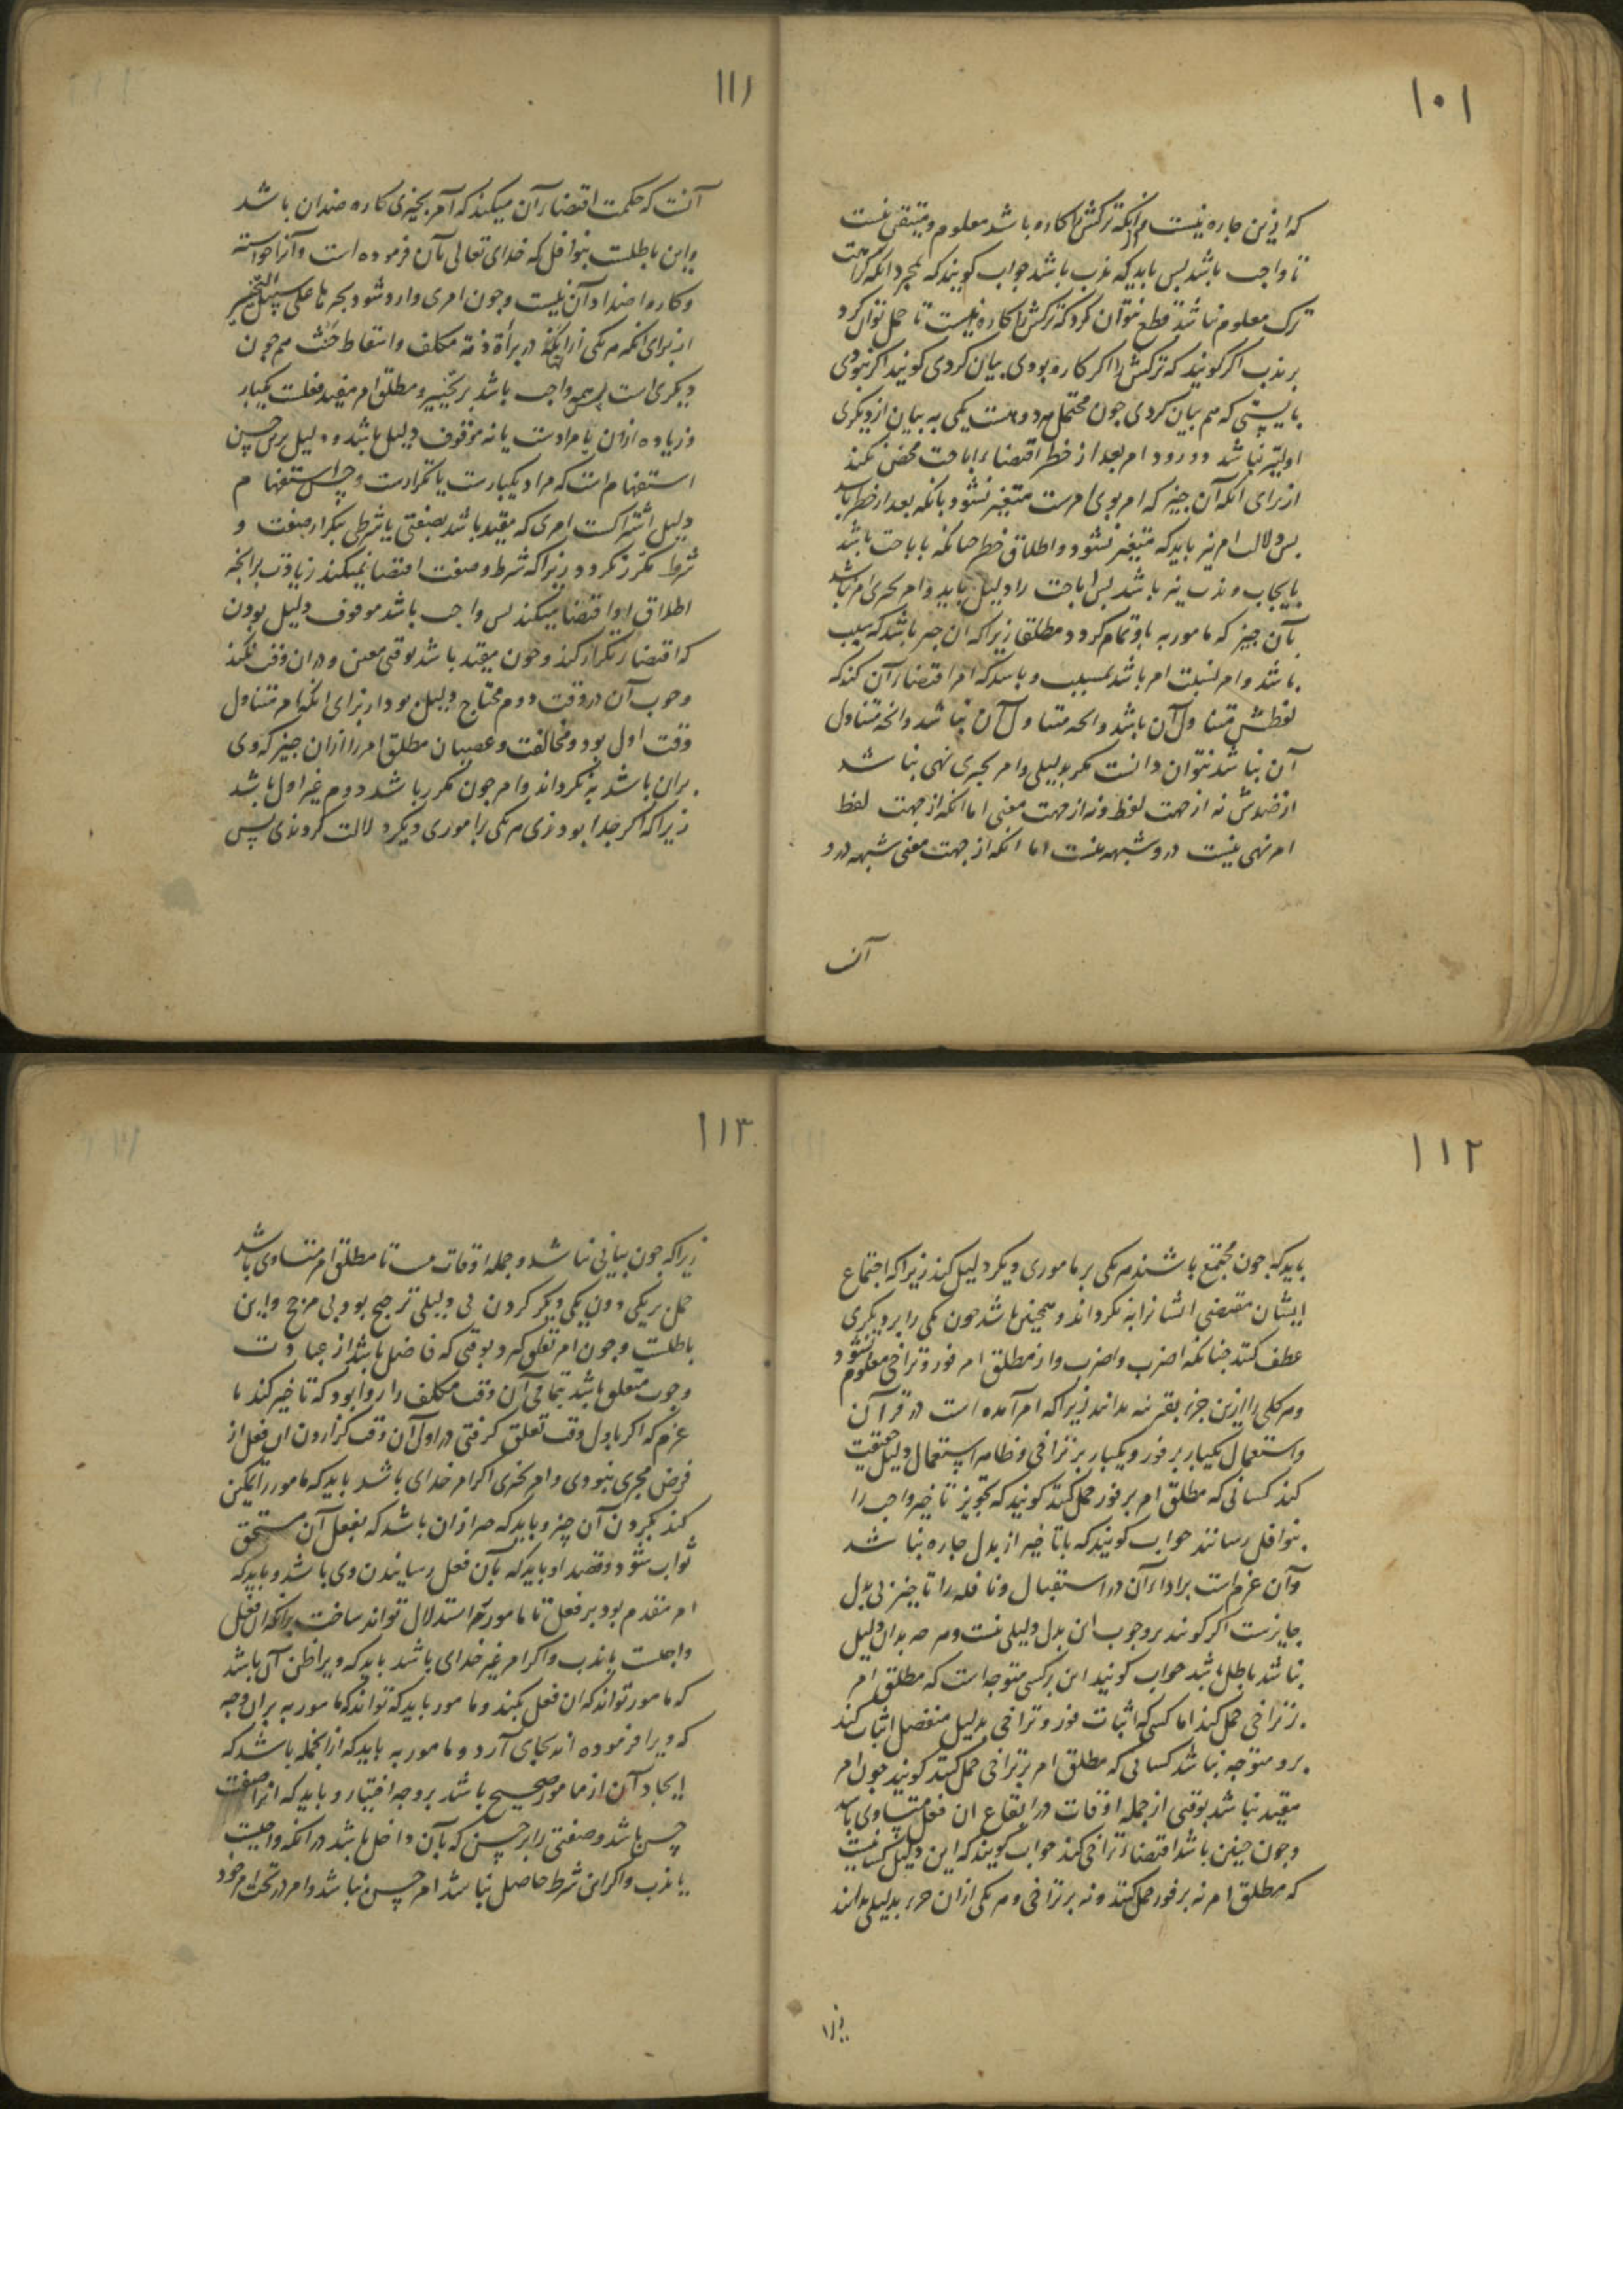 ۱۰۱
که ازین چاره نیست و آنکه ترکش را کاره باشد معلوم و متیقن نیست
تا واجب باشد پس باید که ندب باشد جواب گویند که بمجرد آنکه کراهت
ترک معلوم نباشد قطع نتوان کرد که ترکش را کاره نیست تا حمل توان کرد
بر ندب اگر گویند که ترکش را اگر کاره بودی بیان کردی گویند اگر نبودی
بایستی که هم بیان کردی چون محتمل هر دو هست یکی به بیان از دیگری
اولیتر نباشد و ورود امر بعد از حظر اقتضاء اباحت محض نکند
از برای آنکه آن چیز که امر بوی امرست متغیر نشود بآنکه بعد از حظر باشد
پس دلالت امر نیز باید که متغیر نشود و اطلاق حظر چنانکه باباحت باشد
بایجاب و ندب نیز باشد پس اباحت را دلیل باید و امر بچیزی امر باشد
بآن چیز که مامور به باو تمام گردد مطلقا زیرا که آن چیز باشد که سبب
باشد و امر بسبب امر باشد بمسبب و باشد که امر اقتضاء آن کند که
لفظش متناول آن باشد و آنچه متناول آن نباشد و آنچه متناول
آن نباشد نتوان دانست مگر بدلیلی و امر بچیزی نهی نباشد
از ضدش نه از جهت لفظ و نه از جهت معنی اما آنکه از جهت لفظ
امر نهی نیست درو شبهه نیست اما آنکه از جهت معنی شبهه درو
آنست
۱۱۱
آنست که حکمت اقتضاء آن میکند که آمر بچیزی کاره ضد آن باشد
و این باطلست بنوافل که خدای تعالی بآن فرموده است و آنرا خواسته
و کاره اضداد آن نیست و چون امری وارد شود بچیزها علی سبیل التخییر
از برای آنکه هر یکی از اینها در برأة ذمه مکلف و اسقاط حنث هم چون
دیگری است پس همه واجب باشد بر تخییر و مطلق امر مفید فعلست یکبار
و زیاده ازان یا مرادست یا نه موقوف دلیل باشد و دلیل برین حسن
استفهام است که مراد یکبارست یا تکرارست و حسن استفهام
دلیل اشتراکست امری که مقید باشد بصفتی یا شرطی بتکرار صفت و
شرط مکرر نگردد زیرا که شرط و صفت اقتضا نمیکند زیادت بر آنچه
اطلاق او اقتضا میکند پس واجب باشد موقوف دلیل بودن
که اقتضاء تکرار کند و چون مقید باشد بوقتی معین و در آن وقت نکند
وجوب آن در وقت دوم محتاج دلیل بود از برای آنکه امر متناول
وقت اول بود و مخالفت و عصیان مطلق امر را ازان چیز که وی
بران باشد بنگرداند و امر چون مکرر باشد دوم غیر اول باشد
زیرا که اگر جدا بودندی هر یکی را ماموری دیگر دلالت کردندی پس
۱۱۲
باید که چون مجتمع باشند هر یکی بر ماموری دیگر دلیل کند زیرا که اجتماع
ایشان مقتضی ایشانرا بنگرداند و همچنین باشد چون یکی را بر دیگری
عطف کنند چنانکه اضرب و اضرب و از مطلق امر فور و تراخی معلوم نشود
و هر یکی را ازین جز بقرینه ندانند زیرا که امر آمده است در قرآن
و استعمال یکبار بر فور و یکبار بر تراخی و ظاهر استعمال دلیل حقیقت
کند کسانی که مطلق امر بر فور حمل کنند گویند که تجویز تاخیر واجب را
بنوافل رسانند جواب گویند که با تاخیر از بدل چاره نباشد
و آن عزم است بر اداء آن در استقبال و نافله را تاخیر بی بدل
جایزست اگر گویند بر وجوب این بدل دلیلی نیست و هر چه بدان دلیل
نباشد باطل باشد جواب گویند این بر کسی متوجه است که مطلق امر
بر تراخی حمل کند اما کسی که اثبات فور و تراخی بدلیل منفصل اثبات کند
برو متوجه نباشد کسانی که مطلق امر بر تراخی حمل کنند گویند چون امر
مقید نباشد بوقتی از جمله اوقات در ایقاع آن فعل متساوی باشد
و چون چنین باشد اقتضاء تراخی کند جواب گویند که این دلیل کسانیست
که مطلق امر نه بر فور حمل کنند و نه بر تراخی و هر یکی ازان جز بدلیلی ندانند
زیرا
۱۱۳
زیرا که چون بیانی نباشد و جمله اوقات مستا مطلق امر متساوی باشد
حمل بر یکی دون یکی دیگر کردن بی دلیلی ترجیح بود بی مرجح و این
باطلست و چون امر تعلق گیرد بوقتی که فاضل باشد از عبادت
وجوب متعلق باشد بتمامی آن وقت مکلف را روا بود که تاخیر کند با
عزم که اگر باول وقت تعلق گرفتی در اول آن وقت گزاردن آن فعل از
فرض مجزی نبودی و امر بچیزی اگر امر خدای باشد باید که مامور را تمکین
کند بکردن آن چیز و باید که چیز ازان باشد که بفعل آن مستحق
ثواب شود و قصد او باید که بآن فعل رسانیدن وی باشد و باید که
امر متقدم بود بر فعل تا مامور به استدلال تواند ساخت بر آنکه آن فعل
واجبست یا ندب و اگر امر غیر خدای باشد باید که ویرا ظن آن باشد
که مامور تواند که آن فعل بکند و مامور باید که تواند که مامور به بر آن وجه
که ویرا فرموده اند بجای آرد و مامور به باید که از آنجمله باشد که
ایجاد آن از مامور صحیح باشد بر وجه اختیار و باید که آنرا صفت
حسن باشد و صفتی زاید بر حسن که بآن داخل باشد در آنکه واجبست
یا ندب و اگر این شرط حاصل نباشد امر حسن نباشد و امر در تحت امر خود